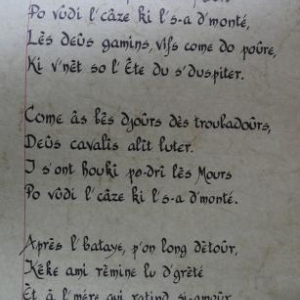 Po vûdî l'câze ki l's-a d'monté,
Lès deûs gamins, vifs come do poûre,
Ki v'nèt so l'Ête du s'duspiter.
Come âs bês djoûrs dès troubadoûrs,
Deûs cavalîs alît luter.
I s'ont houki po-drî lès Mours
Po vûdî l'câze ki l's-a d'monté.
Après l'bataye, p'on long dètoûr,
Kéke ami rèmine lu d'grèté
Èt â l'mére qui ratind